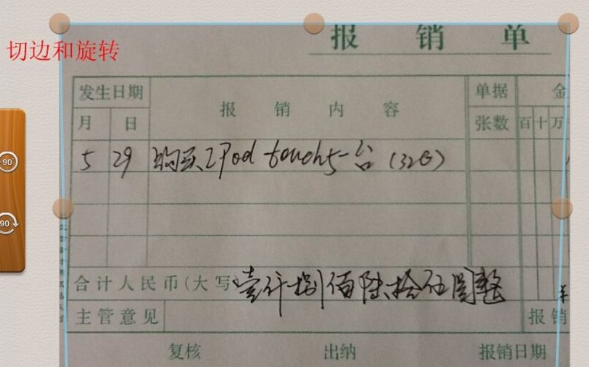 切边和旋转
报 销 单
发生日期 报 销 内 容 单据 金
月 日 张数 百 十 万
5 29 购买IPod touch5一台 (32G)
合计人民币(大写) 壹仟捌佰陆拾伍圆整 ¥
主管意见 报销
复核 出纳 报销日期
90
90